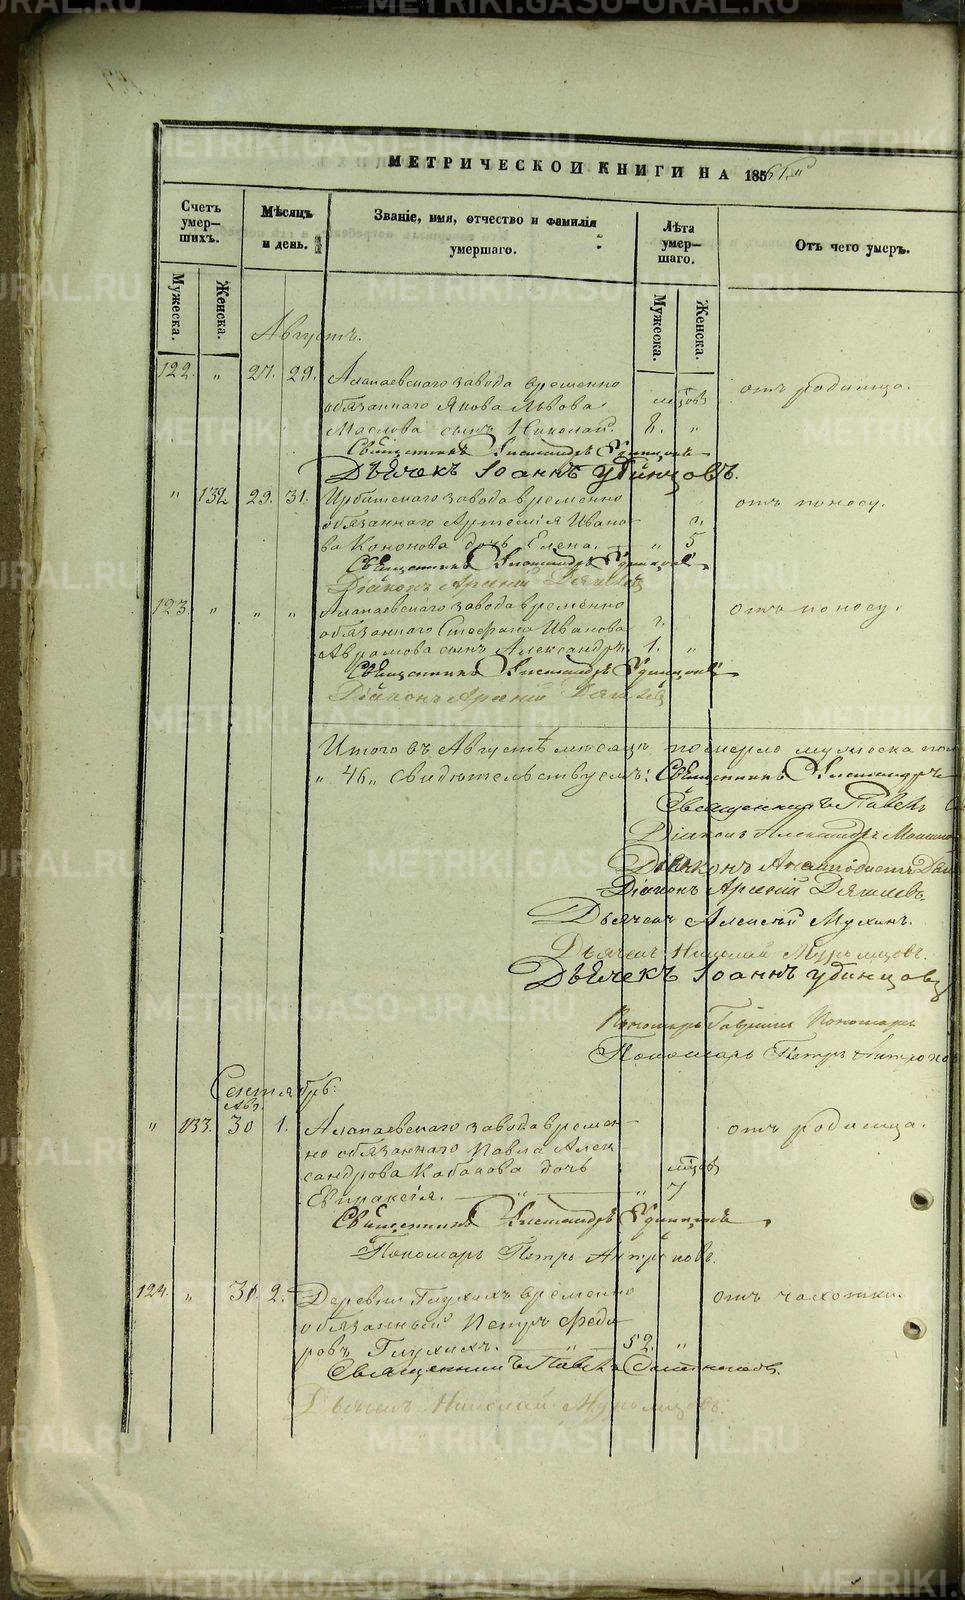 МЕТРИЧЕСКОЙ КНИГИ НА 185
Счетъ умер-шихъ.
Мужеска.
Женска.
Мѣсяцъ и день.
Званіе, имя, отчество и фамилія умершаго.
Лѣта умер-шаго.
Мужеска.
Женска.
Отъ чего умеръ.
Августъ.
122. " 27. 29. Алапаевскаго завода временно отъ родимца.
обязаннаго Якова Львова
Маслова сынъ Николай. 8. "
Священникъ Александръ Удинцовъ
Дьячекъ Іоаннъ Удинцовъ.
" 132 29. 31. Ирбитскаго завода временно отъ поносу.
обязаннаго Артемія Ивано-
ва Кононова дочь Елена. " 5
Священникъ Александръ Удинцовъ
Діаконъ Арсеній Дягилевъ
123. " " " Алапаевскаго завода временно отъ поносу.
обязаннаго Стефана Иванова
Аврамова сынъ Александръ. 1. "
Священникъ Александръ Удинцовъ
Діаконъ Арсеній Дягилевъ
Итого въ Августѣ мѣсяцѣ померло мужеска пол
" 46 " свидѣтельствуемъ: Священникъ Александръ
Священникъ Павелъ
Діаконъ Александръ
Діаконъ
Діаконъ Арсеній Дягилевъ
Дьячекъ Алексѣй Мухинъ.
Дьячекъ Николай
Дьячекъ Іоаннъ Удинцовъ
Пономарь Гавріилъ Пономаревъ
Пономарь Петръ Антроповъ
Сентябрь.
Авг.
" 133. 30 1. Алапаевскаго завода времен- отъ родимца.
но обязаннаго Павла Алек-
сандрова Кабакова дочь
Евпраксія. " " 7
Священникъ Александръ Удинцовъ
Пономарь Петръ Антроповъ.
124. " 31. 2. Деревни Глухихъ временно отъ чахотки.
обязанный Петръ Федо-
ровъ Глухихъ. " 52. "
Священникъ Павелъ
Дьячекъ Николай
METRIKI.GASO-URAL.RU